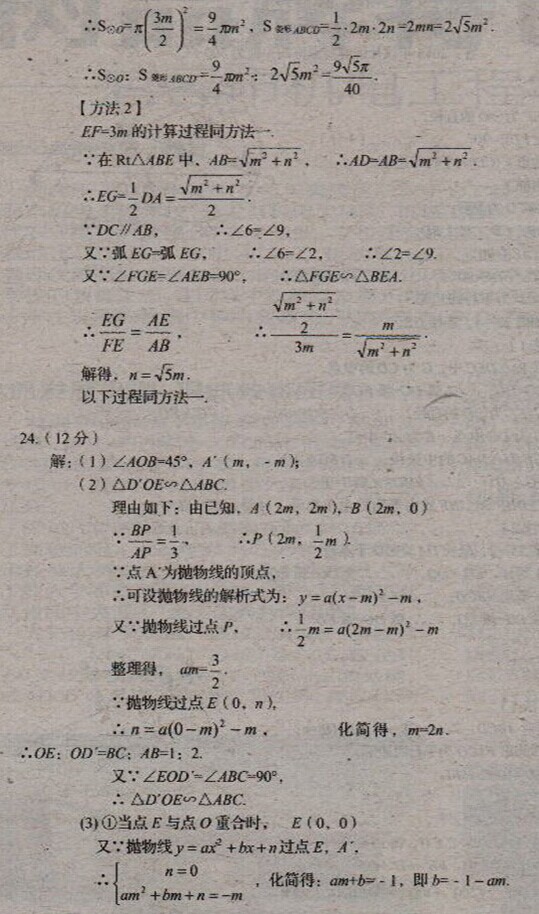 ∴S⊙O=π(3m/2)²=9/4πm², S菱形ABCD=1/2·2m·2n=2mn=2√5m².
∴S⊙O：S菱形ABCD=9/4πm²：2√5m²=9√5π/40.
【方法2】
EF=3m的计算过程同方法一.
∵在Rt△ABE中，AB=√(m²+n²)， ∴AD=AB=√(m²+n²).
∴EG=1/2DA=√(m²+n²)/2.
∵DC∥AB， ∴∠6=∠9，
又∵弧EG=弧EG， ∴∠6=∠2， ∴∠2=∠9.
又∵∠FGE=∠AEB=90°， ∴△FGE∽△BEA.
∴EG/FE=AE/AB， ∴(√(m²+n²)/2)/3m=m/√(m²+n²).
解得，n=√5m.
以下过程同方法一.
24.（12分）
解：（1）∠AOB=45°，A′（m，-m）；
（2）△D′OE∽△ABC.
理由如下：由已知，A（2m，2m），B（2m，0）
∵BP/AP=1/3， ∴P（2m，1/2m）.
∵点A′为抛物线的顶点，
∴可设抛物线的解析式为：y=a(x-m)²-m，
又∵抛物线过点P， ∴1/2m=a(2m-m)²-m
整理得，am=3/2.
∵抛物线过点E（0，n），
∴n=a(0-m)²-m， 化简得，m=2n.
∴OE：OD′=BC：AB=1：2.
又∵∠EOD′=∠ABC=90°，
∴△D′OE∽△ABC.
(3)①当点E与点O重合时， E（0，0）
又∵抛物线y=ax²+bx+n过点E，A′，
∴{n=0 am²+bm+n=-m ，化简得：am+b=-1，即b=-1-am.